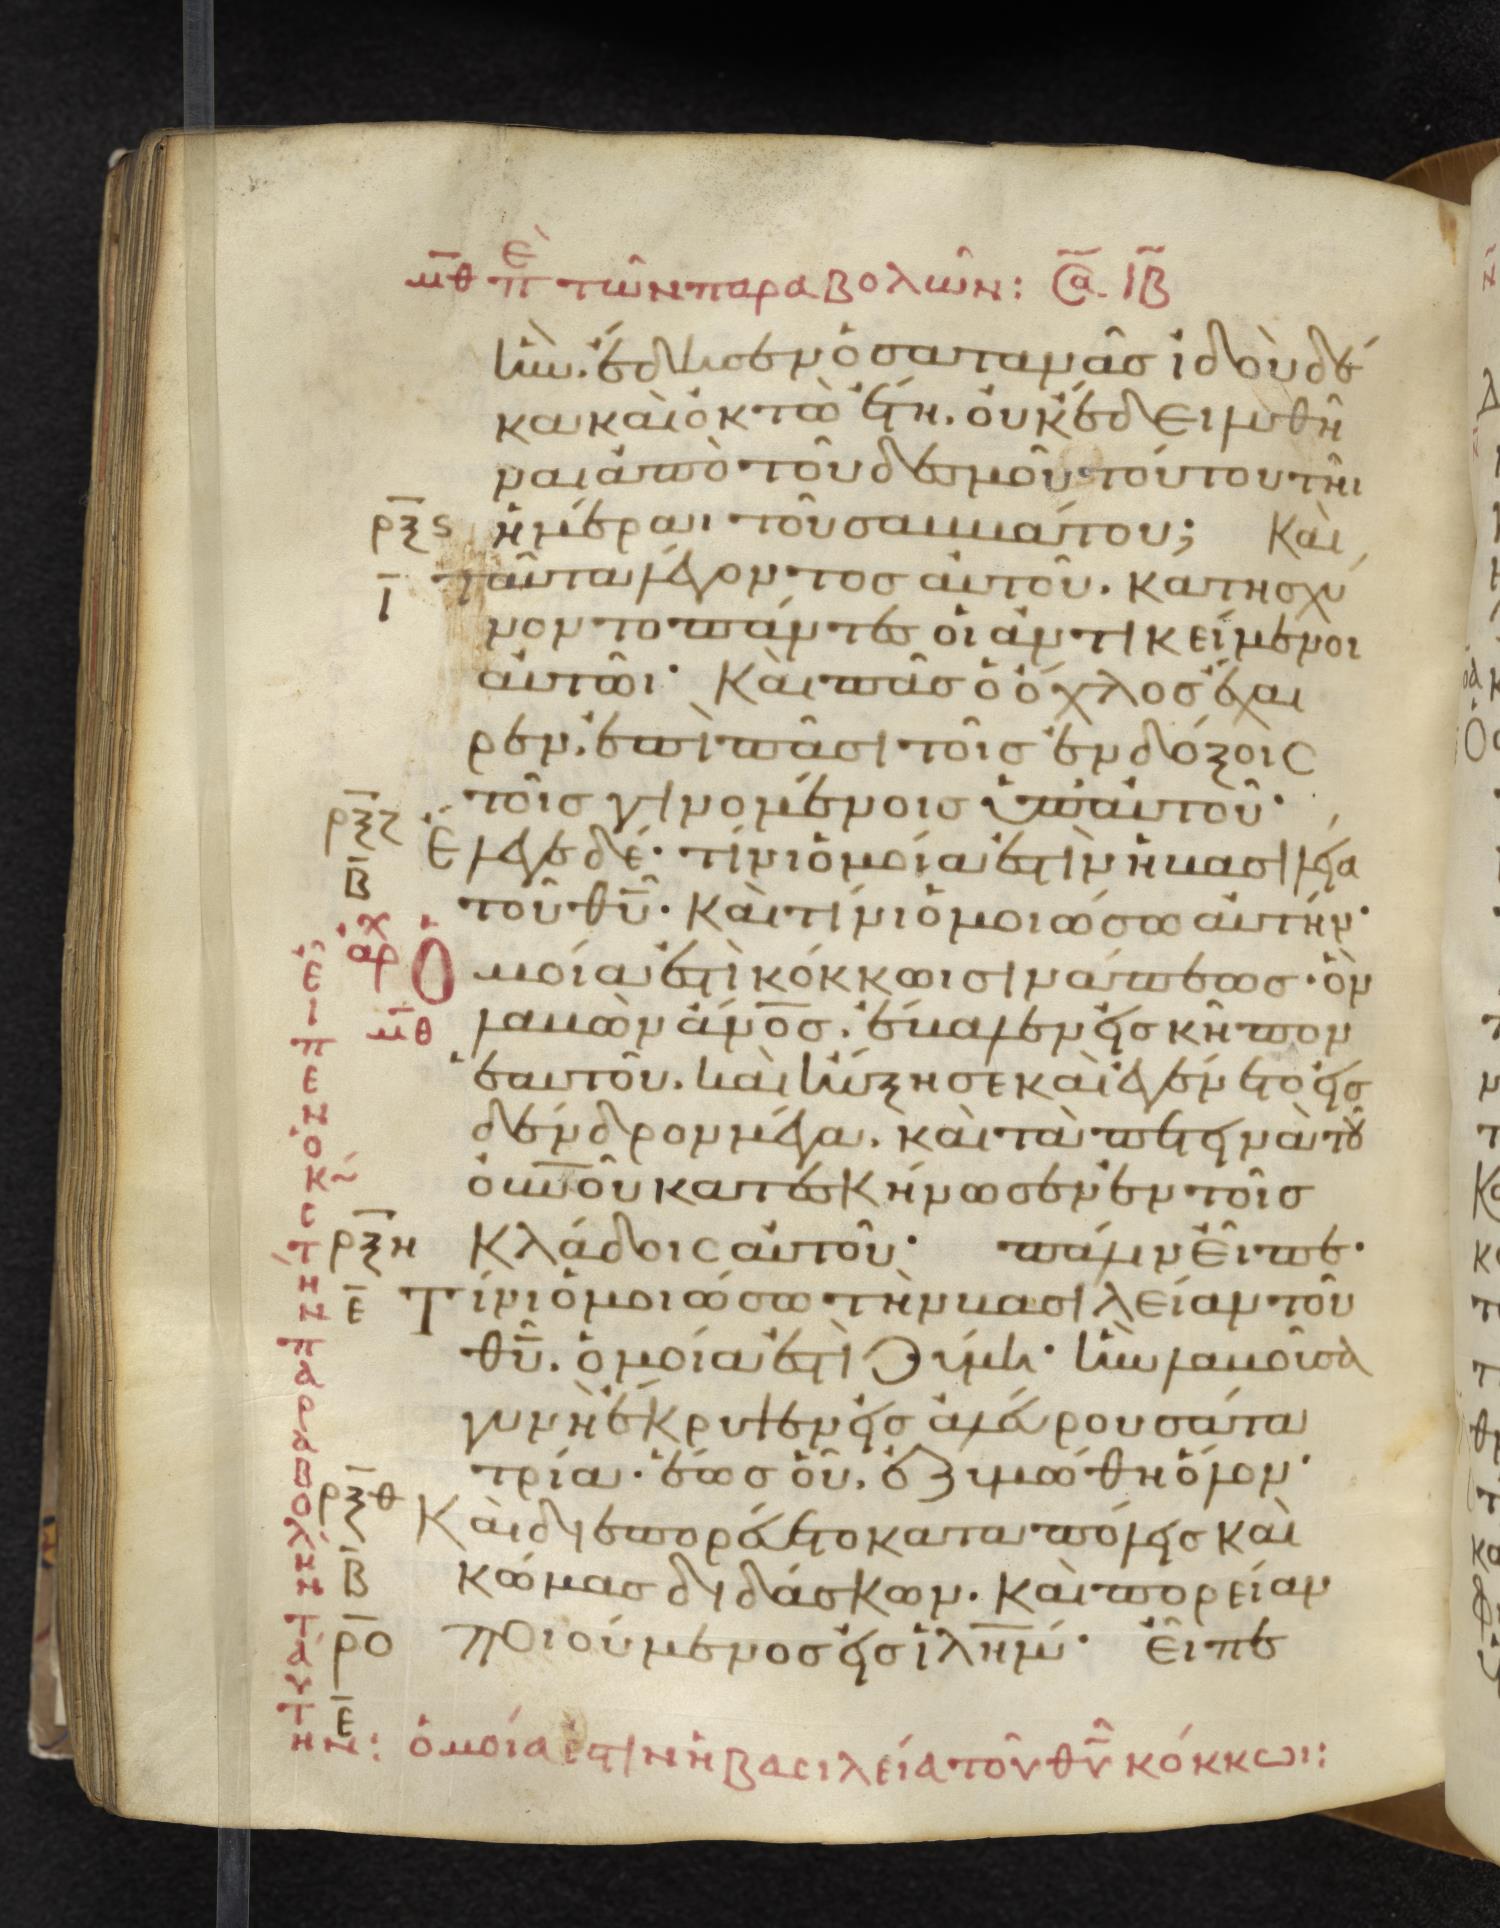 μ̅θ̅ πε τῶν παραβολῶν: Σα. ΙΒ
ἣν ἔδησεν ὁ σατανᾶς ἰδοὺ δέ
κα καὶ ὀκτὼ ἔτη. οὐκ ἔδει λυθῆ
ναι ἀπὸ τοῦ δεσμοῦ τούτου τῆι
ρ̅ξ̅ς ἡμέραι τοῦ σαββάτου; Καὶ
ι̅ ταῦτα λέγοντος αὐτοῦ. κατησχύ
νοντο πάντες οἱ ἀντικείμενοι
αὐτῶι· Καὶ πᾶσ ὁ ὄχλοσ ἔχαι
ρεν. ἐπὶ πᾶσι τοῖσ ἐνδόξοις
τοῖσ γινομένοισ ὑπ' αὐτοῦ·
ρ̅ξ̅ζ Ἔλεγε δέ· τίνι ὁμοία ἐστὶν ἡ βασιλεία
Β̅
τοῦ θ̅υ̅. Καὶ τίνι ὁμοιώσω αὐτήν·
αρχ Ὁμοία ἐστὶ κόκκωι σινάπεωσ· ὃν
μ̅θ̅ λαβὼν ἄν̅ο̅σ. ἔβαλεν εἰσ κῆπον
ἑαυτοῦ. καὶ ηὔξησε καὶ ἐγένετο εἰσ
δένδρον μέγα. καὶ τὰ πετεινὰ τοῦ
ο̅υ̅ν̅ο̅ῦ κατεσκήνωσεν ἐν τοῖσ
ρ̅ξ̅η Κλάδοις αὐτοῦ· πάλιν εἶπε·
Ε̅ Τίνι ὁμοιώσω τὴν βασιλείαν τοῦ
θ̅υ̅. ὁμοία ἐστὶ ζύμη· ἣν λαβοῦσα
γυνὴ ἔκρυψεν εἰσ ἀλεύρου σάτα
τρία. ἕωσ οὗ. ἐζυμώθη ὅλον·
ρ̅ξ̅θ Καὶ διεπορεύετο κατὰ πόλεισ καὶ
Β̅ κώμασ διδάσκων. καὶ πορείαν
ρ̅ο̅ ποιούμενοσ εἰσ ἰλ̅η̅μ̅· εἶπε
Ε̅
εἶπεν ὁ κ̅ς τὴν παραβολὴν ταύτην:
ὁμοία ἐστὶν ἡ βασιλεία τοῦ θ̅υ̅ κόκκωι: